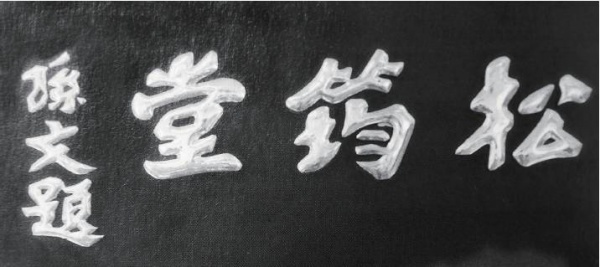 松筠堂
孫文題